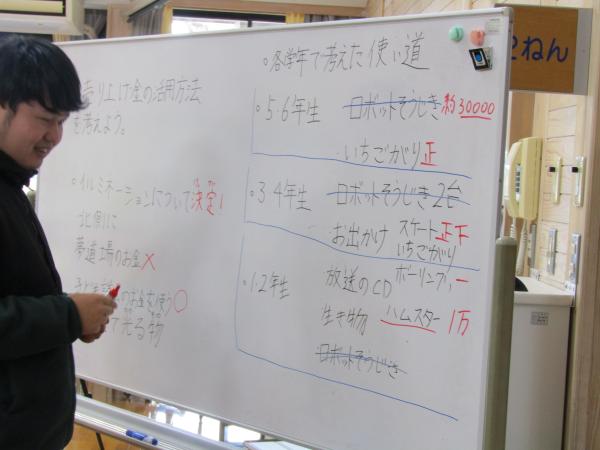 売り上げ金の活用方法
を考えよう。
○イルミネーションについて決定!
北側に
夢道場のお金×
使う○
光る物
○各学年で考えた使い道
○5・6年生 ロボットそうじき 約30000
いちごがり 正
○3・4年生 ロボットそうじき2台
お出かけ スケート 正下
いちごがり
ボーリング 一
○1・2年生 放送のCD
生き物 ハムスター 1万
ロボットそうじき
ねん